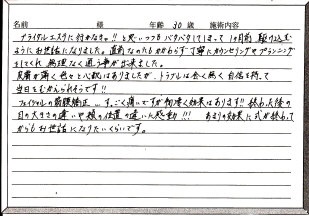 名前 様 年齢 30 歳 施術内容
ブライダルエステに行かなきゃ!!と思いつつもバタバタしてしまって1ヶ月前 駆け込む
ようにお世話になりました。直前なのにもかかわらず丁寧にカウンセリングやプランニング
をしてくれ 無理なく通う事が出来ました。
皮膚が薄く 色々と心配はありましたが、トラブルは全く無く 自信を持って
当日をむかえられそうです!!
フェイシャルの筋膜矯正 すごく痛いですが何度く効果はあります!! 終わった後の
目の大きさの違いや頬の位置の違いに感動!!! あまりの効果に式が終わって
からもお世話になりたいくらいです。